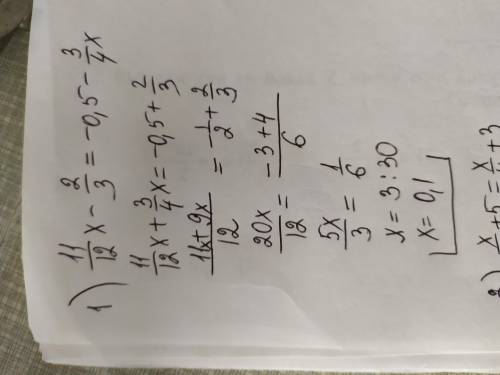 1) 11/12 x - 2/3 = -0,5 - 3/4 x
11/12 x + 3/4 x = -0,5 + 2/3
11x+9x/12 = -1/2 + 2/3
20x/12 = -3+4/6
5x/3 = 1/6
x = 3:30
x = 0,1